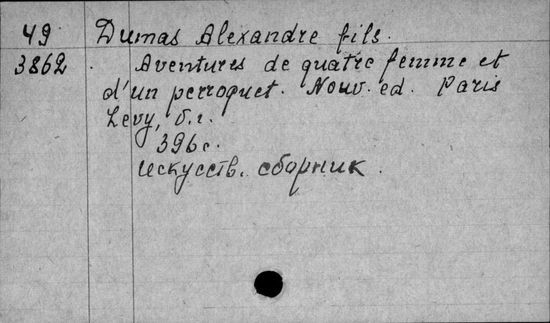 49 Dumas Alexandre fils.
3862. Aventures de quatre femme et
d'un perroquet. Nouv. ed. Paris
Levy, б.г.
396 с.
Искусств. сборник.